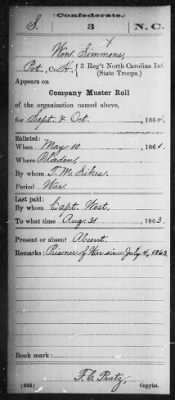 Confederate.
S. 3 N.C.
Wm. Simmons
Pvt., Co. H, 3 Reg't North Carolina Inf.
(State Troops.)
Appears on
Company Muster Roll
of the organization named above,
for Sept. & Oct., 1864.
Enlisted:
When May 10, 1861.
Where Bladen
By whom T. M. Sikes.
Period War.
Last paid:
By whom Capt. West,
To what time Aug. 31, 1863.
Present or absent Absent.
Remarks: Prisoner of War since July 4, 1863.
Book mark:
(642) Copyist.